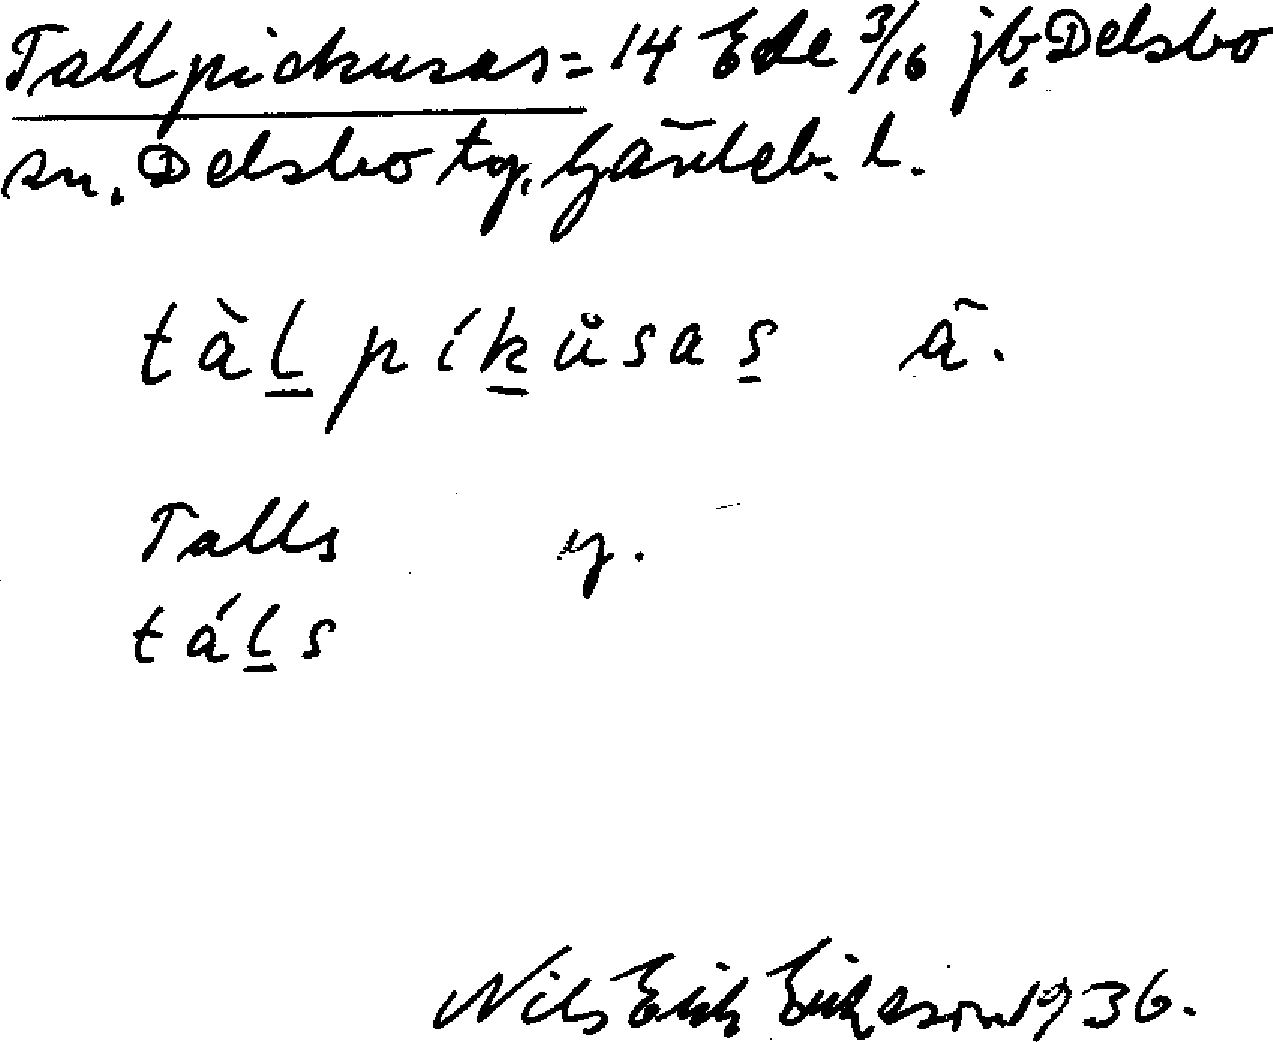 Tallpickusas = 14 Ede 3/16 jb. Delsbo
sn. Delsbo tg, Gävleb. l.
tàl̲ pík̲ůsas̲ ä.
Talls y.
tál̲s
Nils Erik Eriksson 1936.